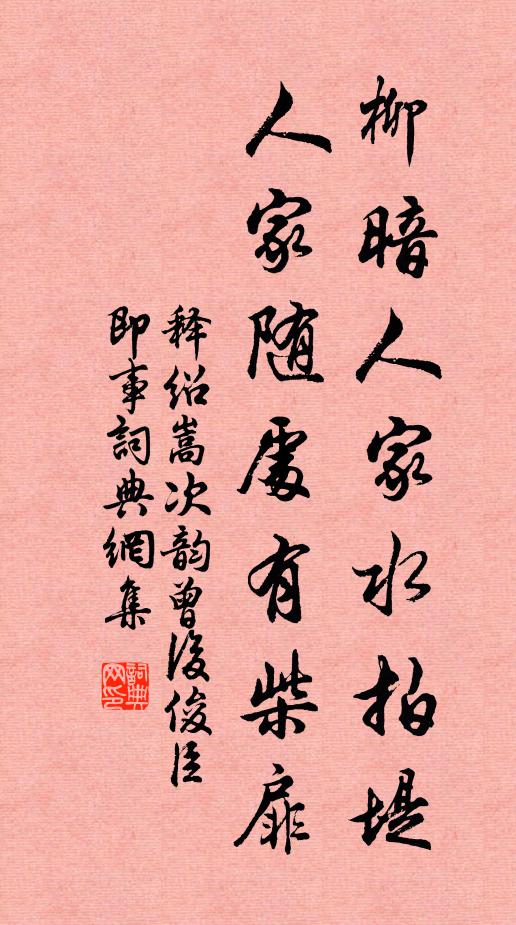 柳暗人家水拍堤
人家随處有柴扉
释绍嵩次韵曾俊臣
即事詞典網集
詞典网印